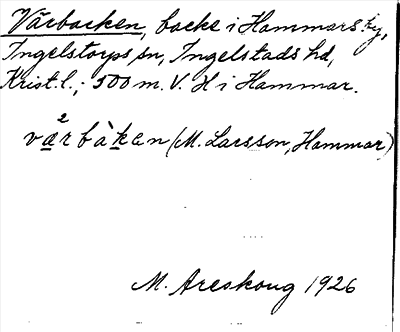 Vårbacken, backe i Hammars by,
Ingelstorps sn, Ingelstads hd,
Krist.l.; 500 m. V. H i Hammar.
vå²rbàken (M. Larsson, Hammar)
M. Areskoug 1926